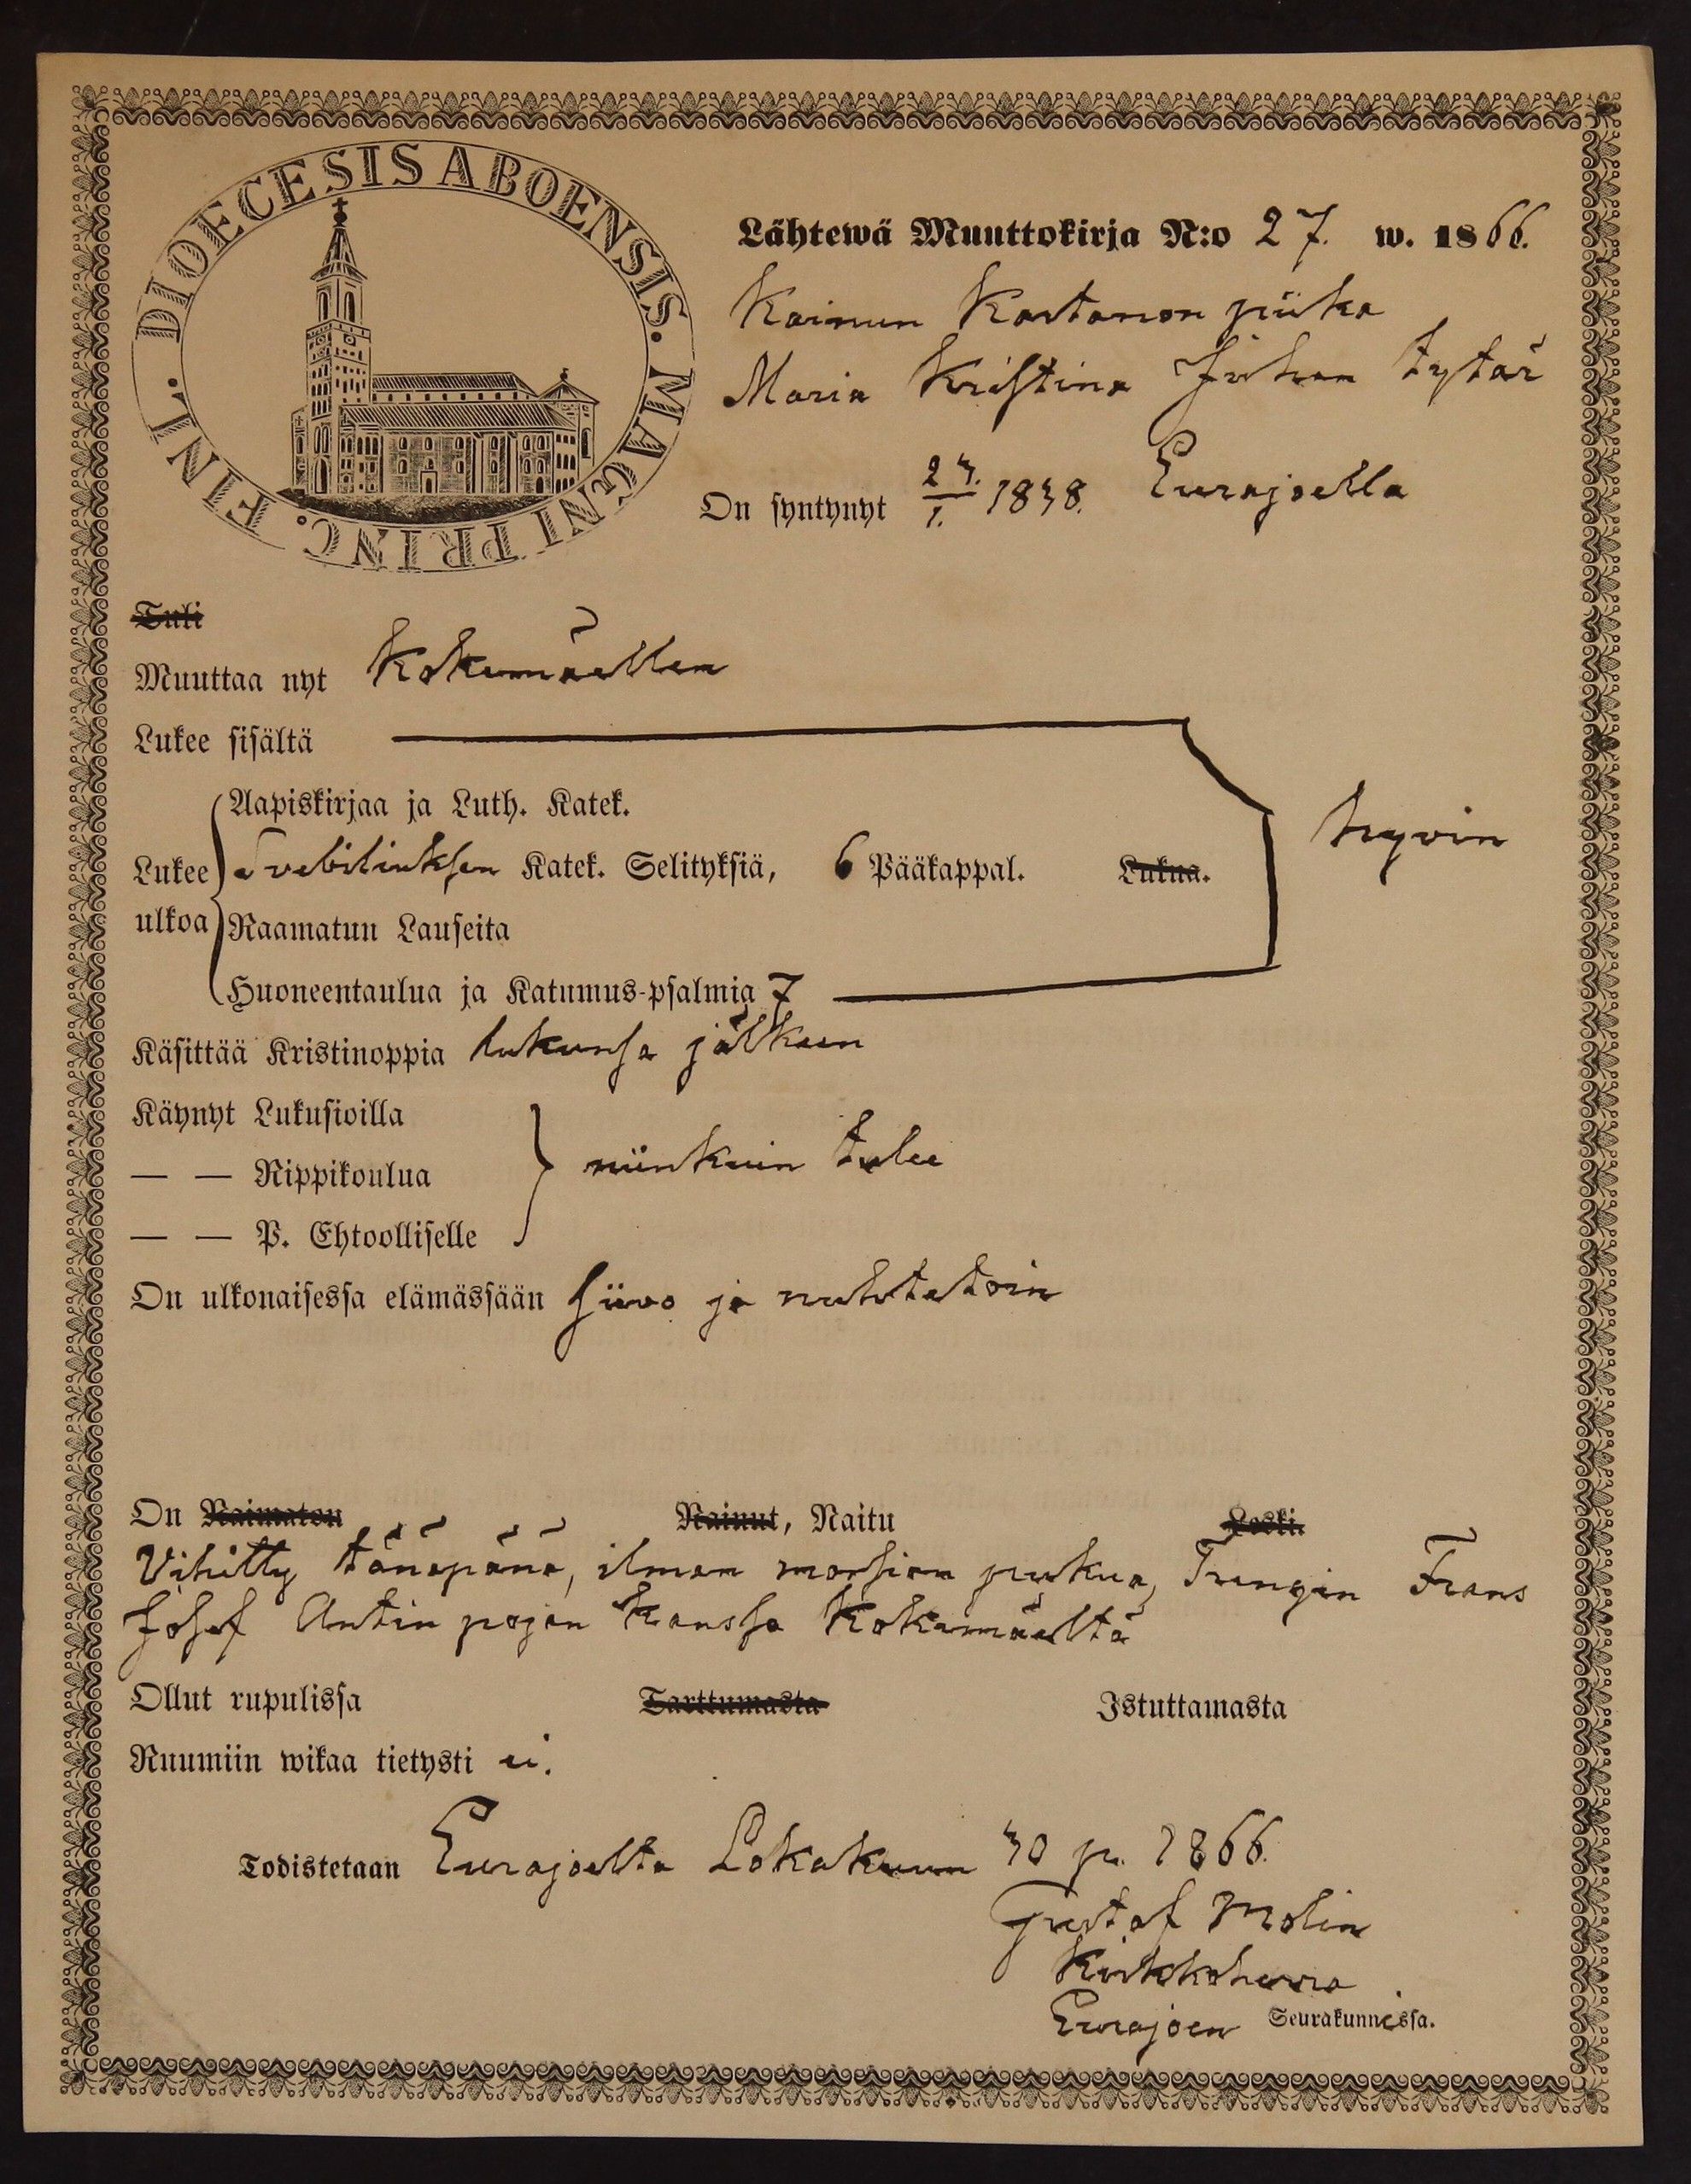 DIOECESIS ABOENSIS. MAGNI PRINC. FINL.
Lähtewä Muuttokirja N:o 27. w. 1866.
Kainun Kartanon piika
Maria Kristina Juhan tytär
On syntynyt 23./1. 1838. Eurajoella
Tuli
Muuttaa nyt Kokemäellen
Lukee sisältä
Aapiskirjaa ja Luth. Katek.
hyvin
Lukee Svebiliuksen Katek. Selityksiä, 6 Pääkappal. Lukua.
ulkoa Raamatun Lauseita
Huoneentaulua ja Katumus-psalmia 7
Käsittää Kristinoppia lukunsa jälkeen
Käynyt Lukusioilla
— — Rippikoulua niinkuin tulee
— — P. Ehtoolliselle
On ulkonaisessa elämässään siivo ja nuhtetoin
On Naimaton Nainut, Naitu Leski.
Vihitty tänäpänä, ilman morsian pukua, Frans
Josef Antin pojan kanssa Kokemäeltä
Ollut rupulissa Tarttumasta Istuttamasta
Ruumiin wikaa tietysti ei.
Todistetaan Eurajoelta Lokakuun 30 p. 1866.
Gustaf Molin
Kirkkoherra
Eurajoen Seurakunnassa.